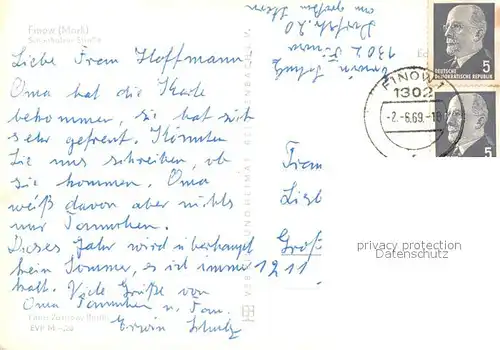 Finow (Mark)
Schönholzer Straße
Liebe Frau Hoffmann
Oma hat die Karte
bekommen, sie hat sich
sehr gefreut. Könnten
Sie uns schreiben, ob
sie kommen. Oma
weiß davon aber nichts
nur Tannchen.
Dieses Jahr wird überhaupt
kein Sommer, es ist immer
kalt. Viele Grüße von
Oma Tannchen u. Fam.
Erwin Schulz
EVP M -,20
Erwin Schulz
1302 Finow
VEB BILD UND HEIMAT REICHENBACH I. V.
5
DEUTSCHE
DEMOKRATISCHE REPUBLIK
5
FINOW 1
1302
-2.-6.69.-18
Frau
Groß
1211
privacy protection
Datenschutz